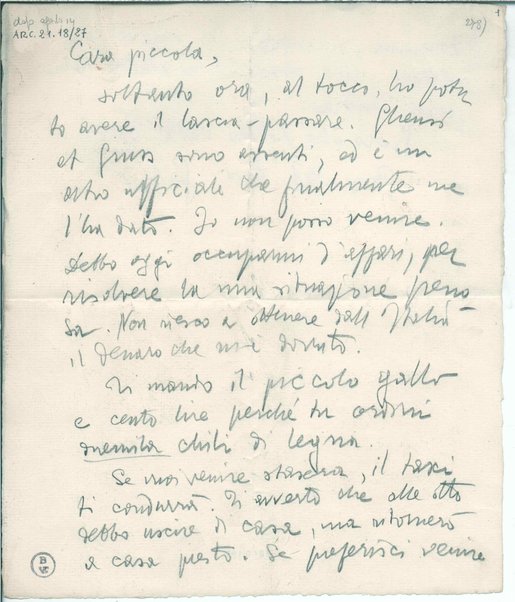 dop. agosto 14
ARC. 21. 18/87
278)
Cara piccola,
soltanto ora, al tocco, ho potu
to avere il lascia-passare. Gheusi
et sono assenti, ed è un
altro ufficiale che finalmente me
l'ha dato. Io non posso venire.
Debbo oggi occuparmi d'affari, per
risolvere la mia situazione peno
sa. Non riesco a ottenere dall'Italia
il denaro che mi è dovuto.
Ti mando il piccolo gallo
e cento lire perché tu ordini
duemila chili di legna.
Se vuoi venire stasera, il taxi
ti condurrà. Ti avverto che alle otto
debbo uscire di casa, ma ritornerò
a casa presto. Se preferisci venire